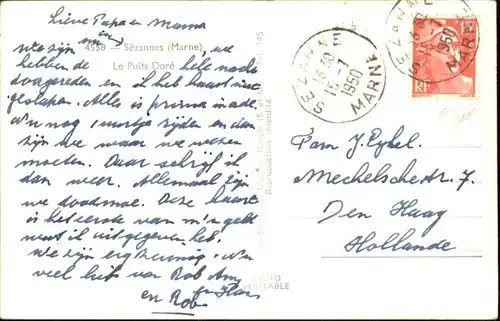 Lieve Papa en Mama
We zijn nu in
4558 - Sézannes (Marne)
we
hebben de hele nacht
Le Puits Doré
doorgereden en ik heb haast niet
geslapen. Alles is prima in orde.
N'n nog 1 uurtje rijden en dan
zijn we waar we wezen
moeten. Daar schrijf ik
dan weer. Allemaal zijn
we doodmoe. Deze kaart
is het eerste van m'n geld
wat ik uitgegeven heb.
We zijn erg zuinig. N'n
veel liefs van Rob
en Rob
SEZANNE
MARNE
15-7
1950
RF
Fam J. Eykel.
Mechelschestr. 7
Den Haag
Hollande
Reproduction interdite
VÉRITABLE